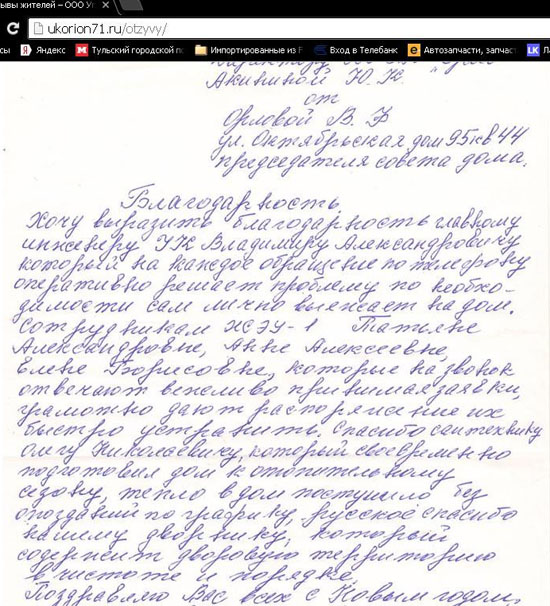 ывы жителей – ООО У
ukorion71.ru/otzyvy/
сы Яндекс Тульский городской по Импортированные из F Вход в Телебанк Автозапчасти, запчаст
Акишиной Ю. К.
от
Орловой В. Ф
ул. Октябрьская дом 95 кв 44
председателя совета дома.
Благодарность.
Хочу выразить благодарность главному
инженеру УК Владимиру Александровичу
который на каждое обращение по телефону
оперативно решает проблему по необхо-
димости сам лично выезжает на дом.
Сотрудникам ЖЭУ-1 Татьяне
Александровне, Анне Алексеевне,
Елене Борисовне, которые на звонок
отвечают вежливо принимая заявки,
грамотно дают распоряжение их
быстро устранить. Спасибо сантехнику
Олегу Николаевичу, который своевременно
подготовил дом к отопительному
сезону, тепло в дом поступило без
опозданий по графику, русское спасибо
нашему дворнику, который
содержит дворовую территорию
в чистоте и порядке.
Поздравляю Вас всех с Новым годом,